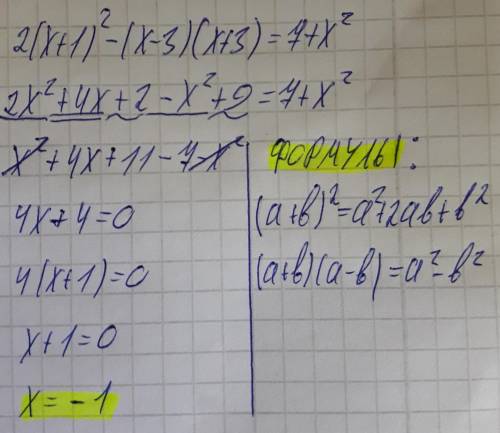 2(x+1)²-(x-3)(x+3)=7+x²
2x²+4x+2-x²+9=7+x²
x²+4x+11-7-x²
4x+4=0
4(x+1)=0
x+1=0
x=-1
ФОРМУЛЫ:
(a+b)²=a²+2ab+b²
(a+b)(a-b)=a²-b²